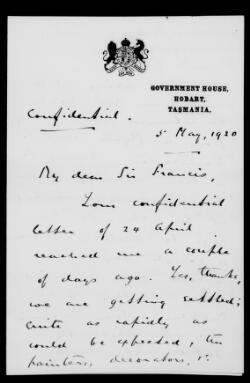 GOVERNMENT HOUSE,
HOBART,
TASMANIA.
Confidential.
5 May, 1920
My dear Sir Francis,
Your confidential
letter of 24 April
reached me a couple
of days ago. Yes, thanks,
we are getting settled;
quite as rapidly as
could be expected, the
painters, decorators,